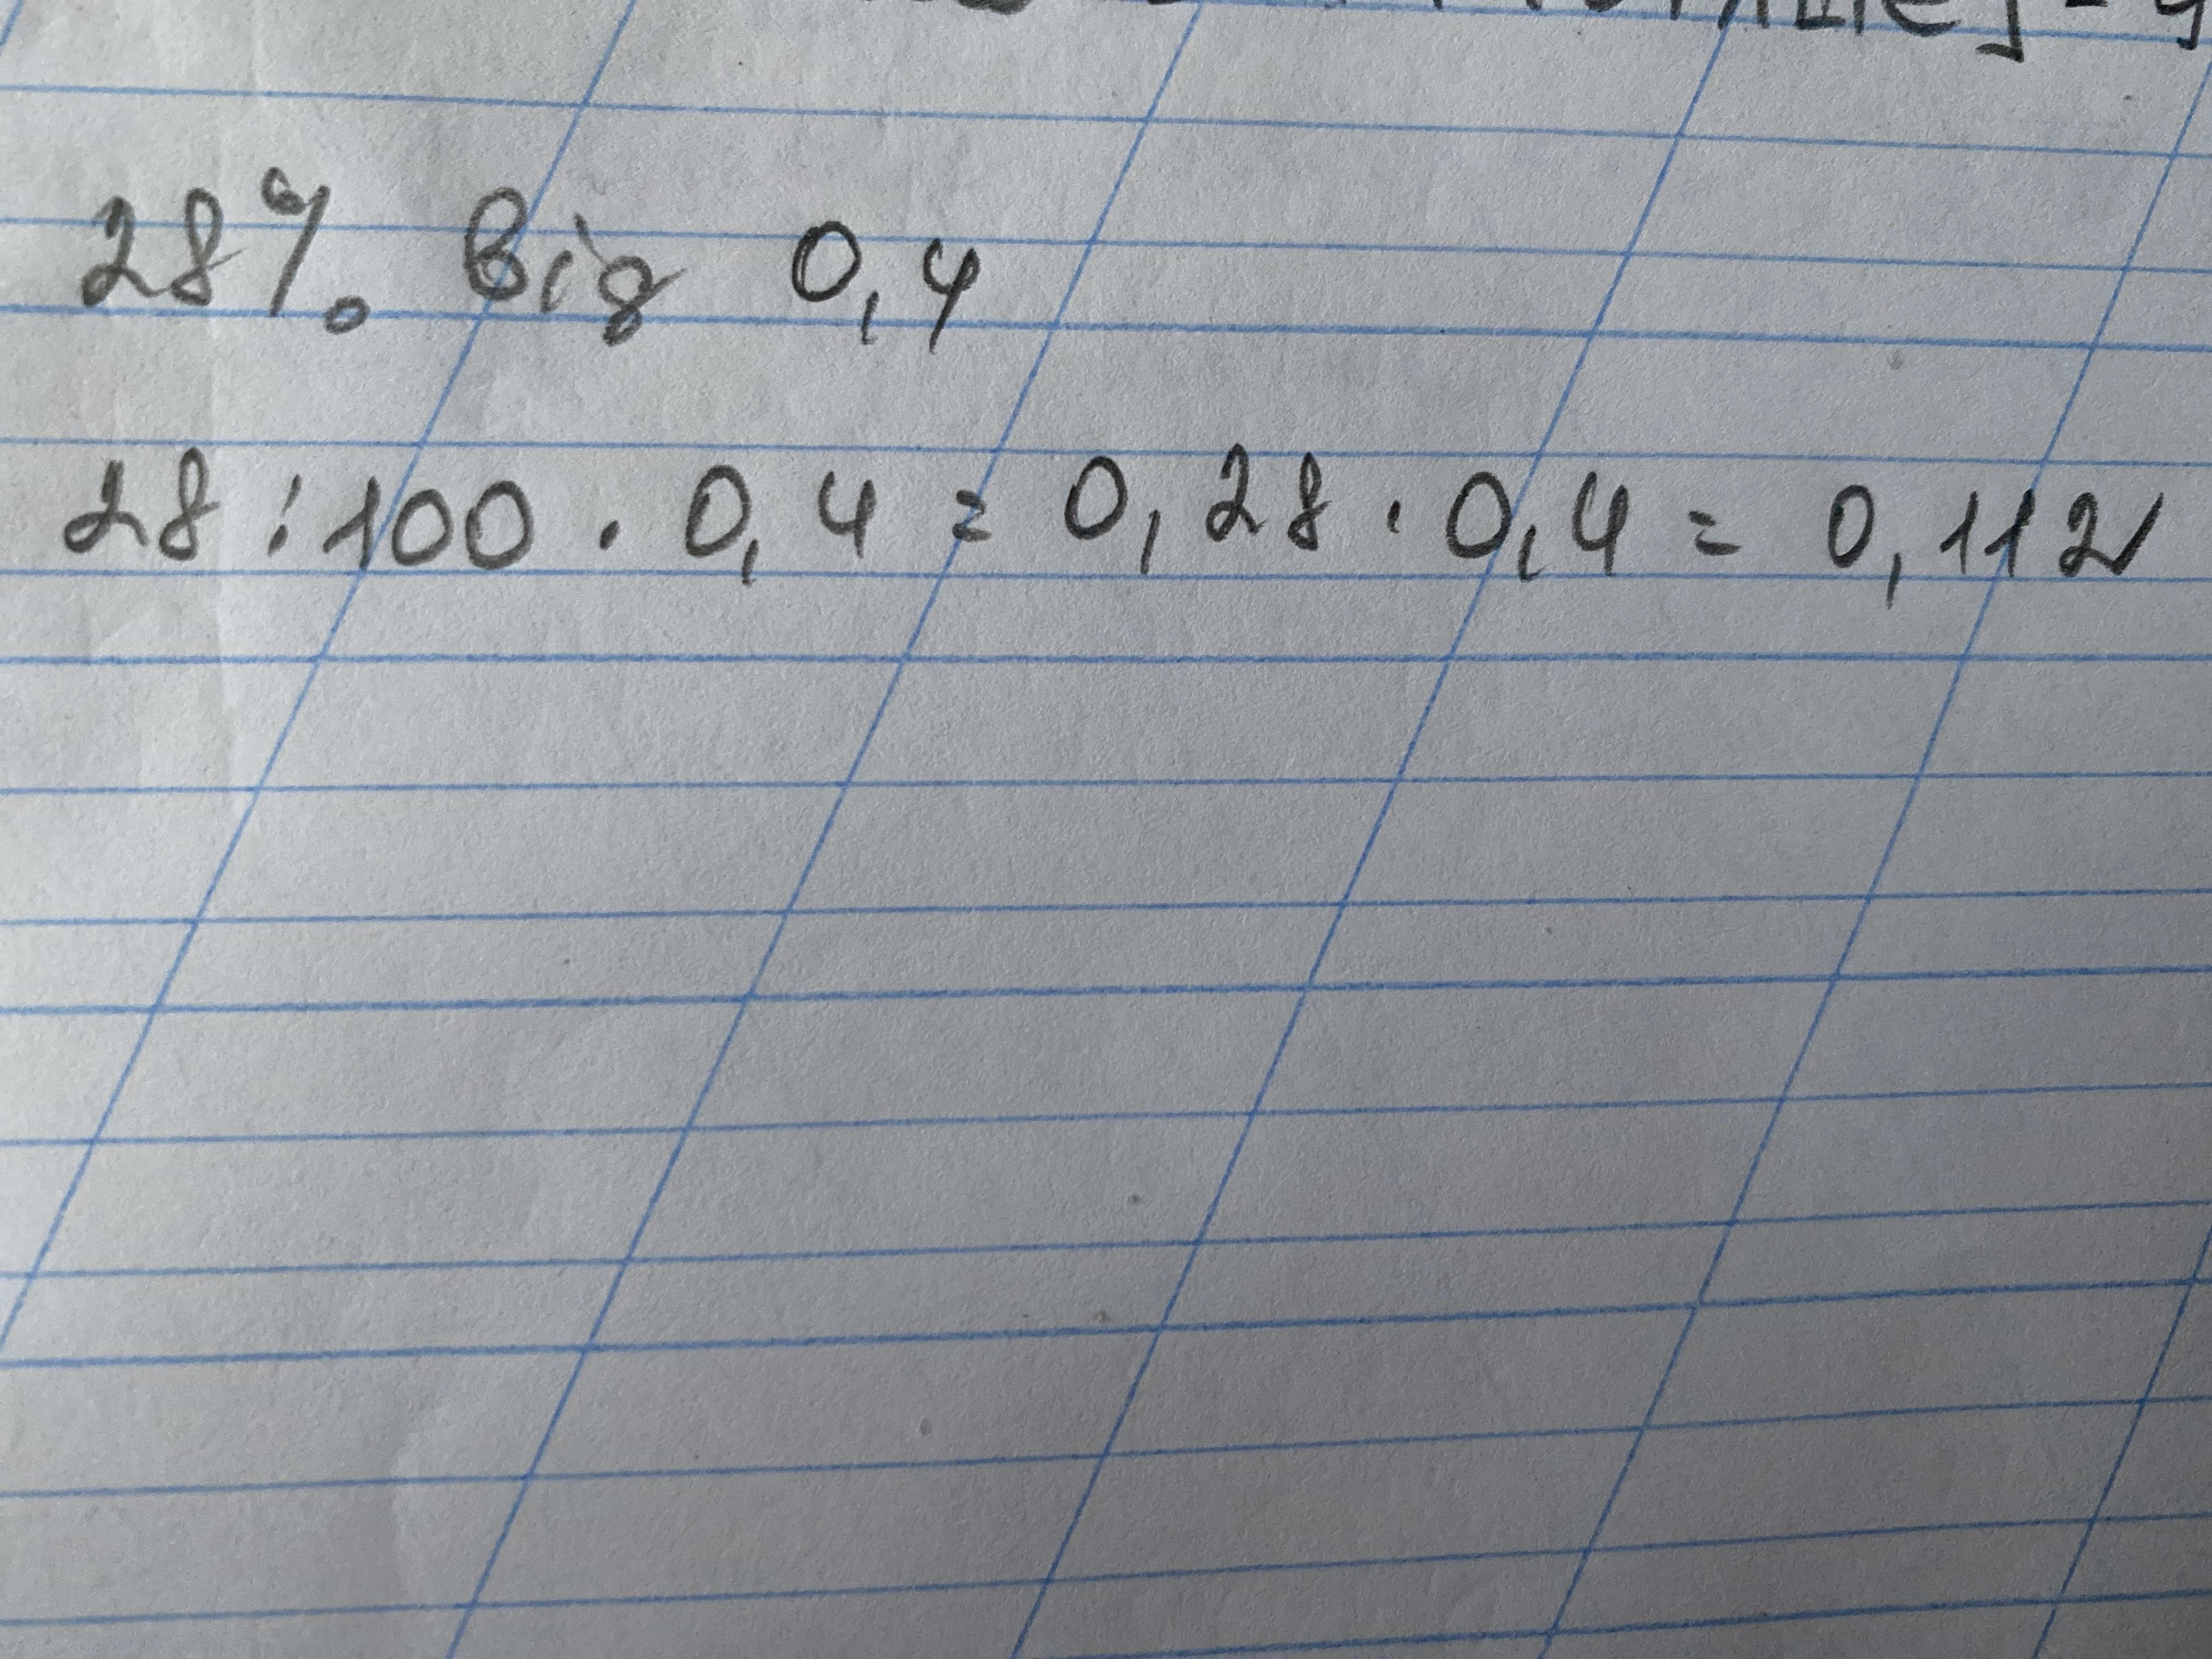 28% від 0,4
28 : 100 · 0,4 = 0,28 · 0,4 = 0,112